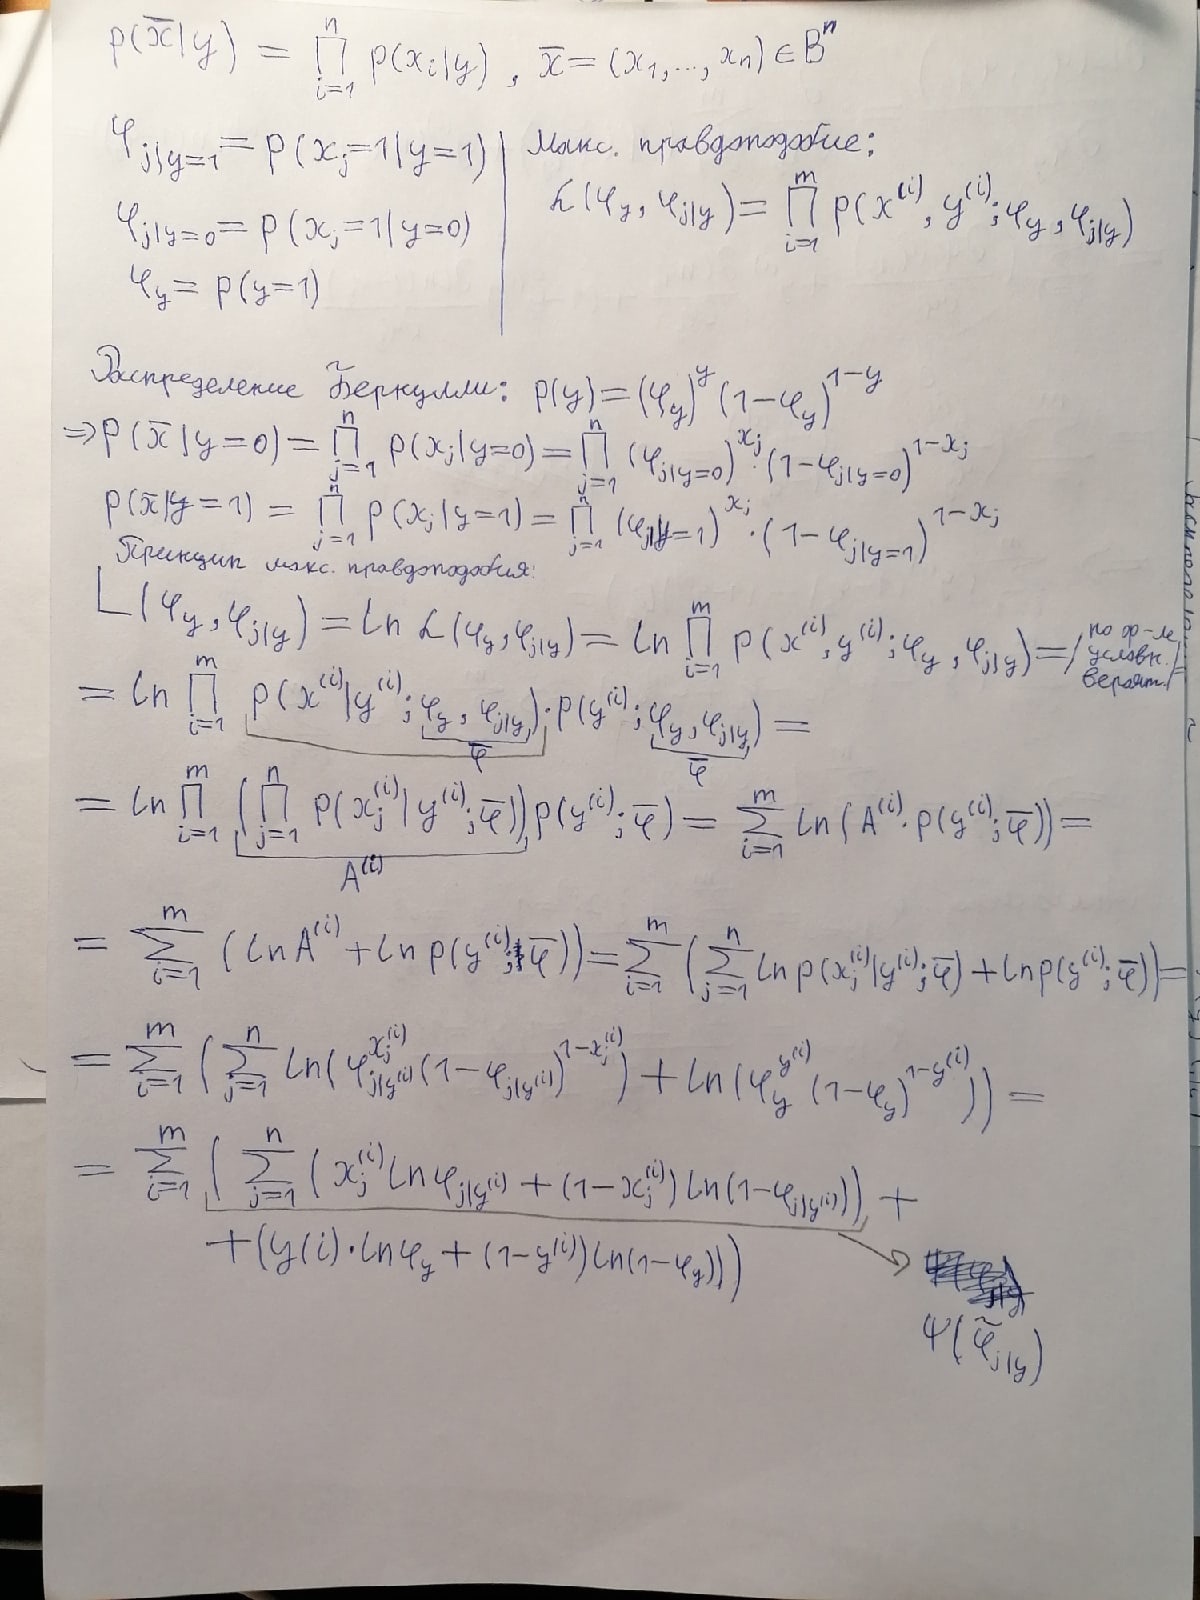 p(x̄|y) = ∏_{i=1}^{n} p(x_i|y), x̄ = (x_1,..., x_n) ∈ B^n
φ_{j|y=1} = p(x_j=1|y=1)
φ_{j|y=0} = p(x_j=1|y=0)
φ_y = p(y=1)
Макс. правдоподобие:
ℒ(φ_y, φ_{j|y}) = ∏_{i=1}^{m} p(x^{(i)}, y^{(i)}; φ_y, φ_{j|y})
Распределение Бернулли: p(y) = (φ_y)^y (1-φ_y)^{1-y}
⇒ p(x̄|y=0) = ∏_{j=1}^{n} p(x_j|y=0) = ∏_{j=1}^{n} (φ_{j|y=0})^{x_j} · (1-φ_{j|y=0})^{1-x_j}
p(x̄|y=1) = ∏_{j=1}^{n} p(x_j|y=1) = ∏_{j=1}^{n} (φ_{j|y=1})^{x_j} · (1-φ_{j|y=1})^{1-x_j}
Принцип макс. правдоподобия:
L(φ_y, φ_{j|y}) = ln ℒ(φ_y, φ_{j|y}) = ln ∏_{i=1}^{m} p(x^{(i)}, y^{(i)}; φ_y, φ_{j|y}) = /по ф-ле условн. вероят./ =
= ln ∏_{i=1}^{m} p(x^{(i)}|y^{(i)}; φ_y, φ_{j|y}) · p(y^{(i)}; φ_y, φ_{j|y}) =
φ̄ φ̄
= ln ∏_{i=1}^{m} (∏_{j=1}^{n} p(x_j^{(i)}|y^{(i)}; φ̄)) p(y^{(i)}; φ̄) = ∑_{i=1}^{m} ln(A^{(i)} · p(y^{(i)}; φ̄)) =
A^{(i)}
= ∑_{i=1}^{m} (ln A^{(i)} + ln p(y^{(i)}; φ̄)) = ∑_{i=1}^{m} (∑_{j=1}^{n} ln p(x_j^{(i)}|y^{(i)}; φ̄) + ln p(y^{(i)}; φ̄)) =
= ∑_{i=1}^{m} (∑_{j=1}^{n} ln(φ_{j|y^{(i)}}^{x_j^{(i)}} (1-φ_{j|y^{(i)}})^{1-x_j^{(i)}}) + ln(φ_y^{y^{(i)}} (1-φ_y)^{1-y^{(i)}})) =
= ∑_{i=1}^{m} (∑_{j=1}^{n} (x_j^{(i)} ln φ_{j|y^{(i)}} + (1-x_j^{(i)}) ln(1-φ_{j|y^{(i)}})) +
+ (y(i) · ln φ_y + (1-y^{(i)}) ln(1-φ_y)))
Ψ(φ̃_{j|y})